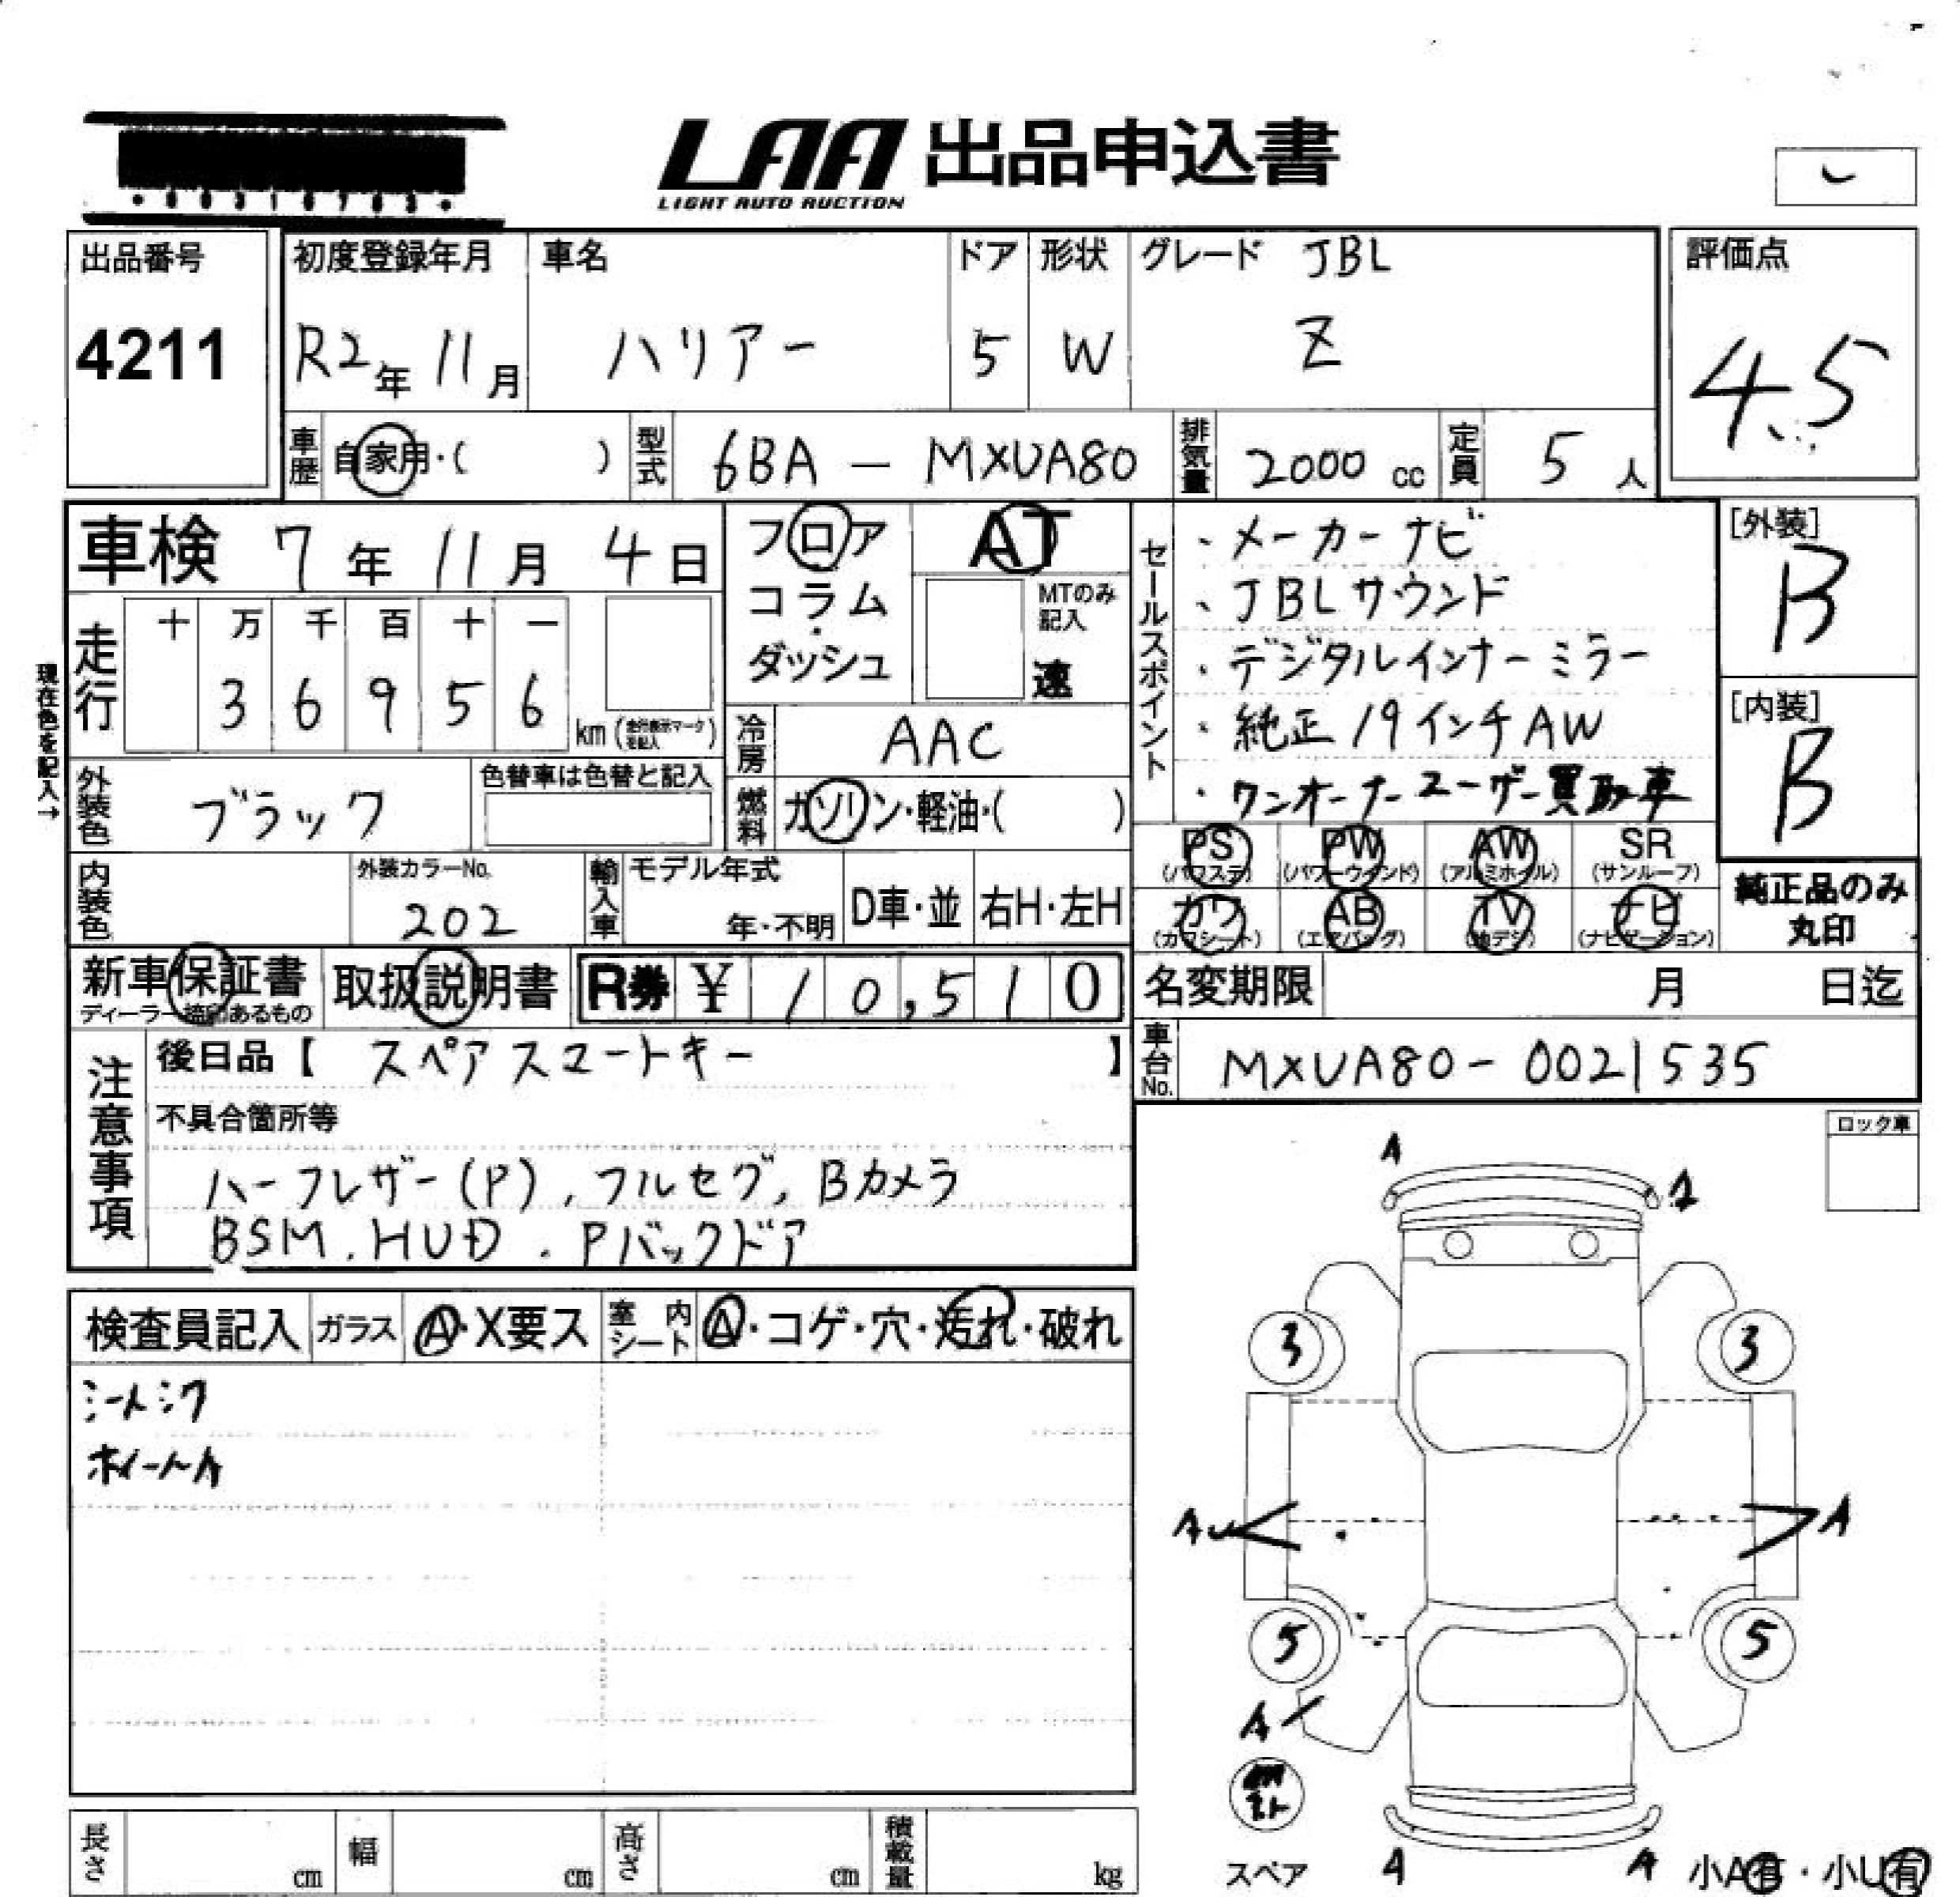 LAA 出品申込書
LIGHT AUTO AUCTION
出品番号
4211
初度登録年月
R2年 11月
車名
ハリアー
ドア
5
形状
W
グレード JBL
Z
評価点
4.5
車歴 自家用・( )
型式 6BA - MXUA80
排気量 2000 cc
定員 5 人
車検 7年 11月 4日
フロア
コラム
・
ダッシュ
AT
MTのみ
記入
速
セールスポイント
・メーカーナビ
・JBLサウンド
・デジタルインナーミラー
・純正19インチAW
・ワンオーナーユーザー買取車
[外装]
B
[内装]
B
現在色を記入→
走行
十 万 千 百 十 一
3 6 9 5 6
km (走行表示マークを記入)
冷房 AAC
外装色 ブラック
色替車は色替と記入
燃料 ガソリン・軽油・( )
PS (パワステ)
PW (パワーウインド)
AW (アルミホイル)
SR (サンルーフ)
カワ (カワシート)
AB (エアバッグ)
TV (地デジ)
ナビ (ナビゲーション)
純正品のみ
丸印
内装色
外装カラーNo.
202
輸入車
モデル年式
年・不明
D車・並
右H・左H
新車保証書
ディーラー捺印あるもの
取扱説明書
R券 ¥ 10,510
名変期限 月 日迄
車台No. MXUA80-0021535
注意事項
後日品【 スペアスマートキー 】
不具合箇所等
ハーフレザー(P), フルセグ, Bカメラ
BSM. HUD. Pバックドア
ロック車
検査員記入
ガラス A・X要ス
室内シート A・コゲ・穴・汚れ・破れ
シートシワ
ホイールA
A
3 3
A
5 5
A
スペア
A A
小A有・小U有
長さ cm
幅 cm
高さ cm
積載量 kg